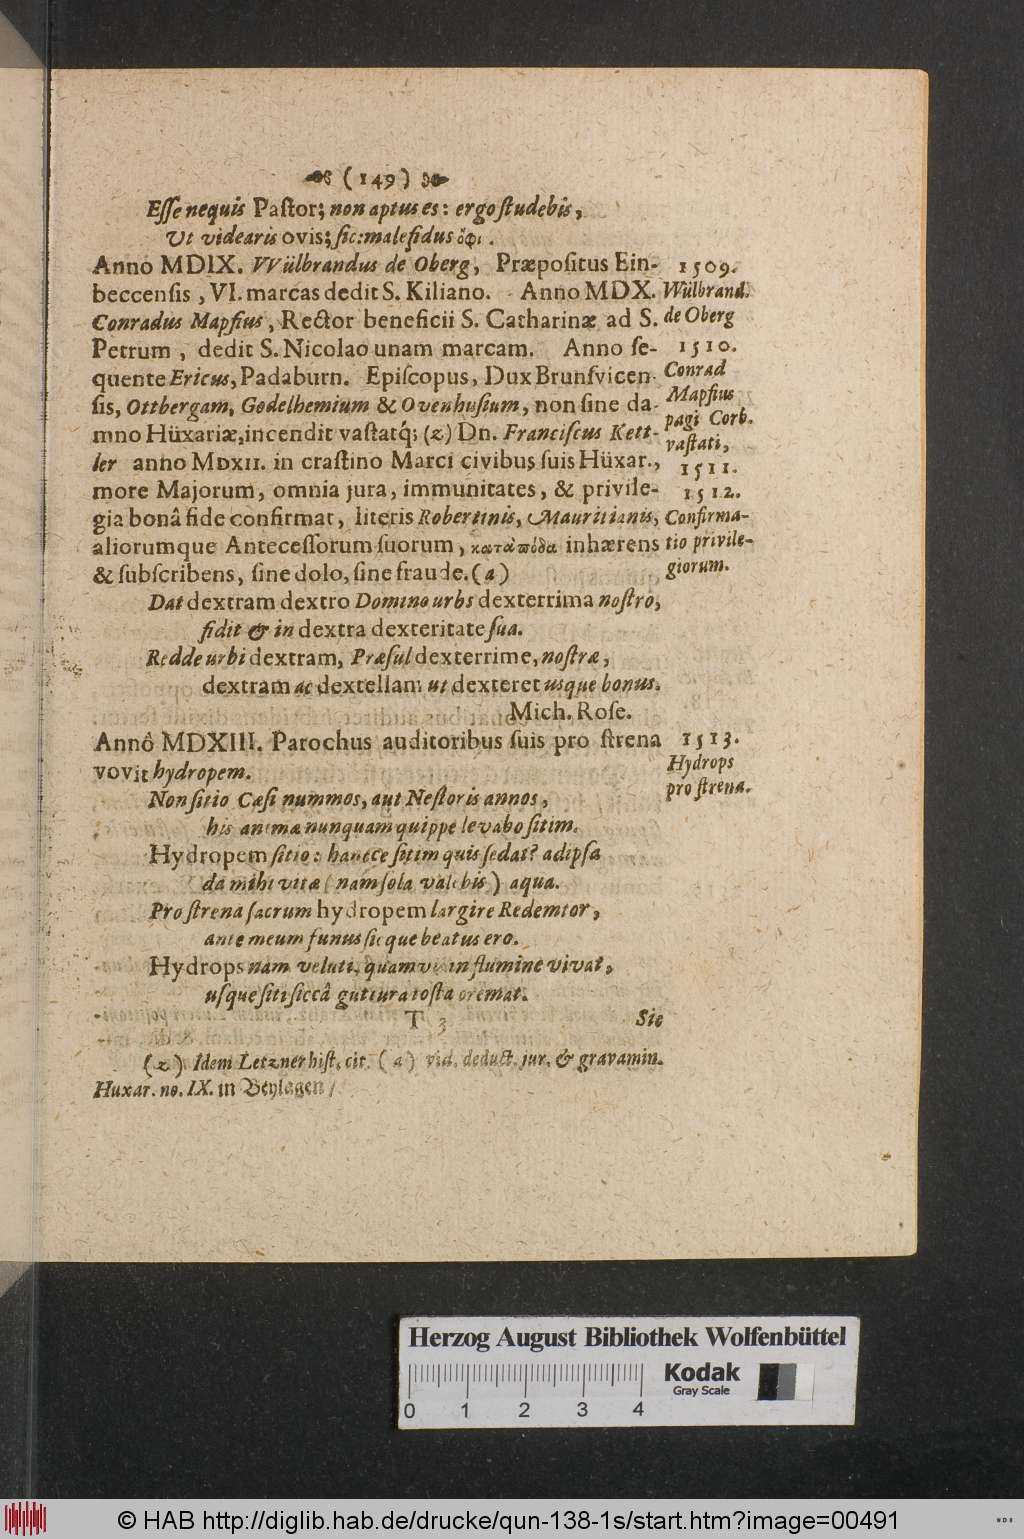 (149)
Eſſe nequis Paſtor; non aptus es: ergo ſtudebis,
Ut videaris ovis; ſic: malefidus ὄφι.
Anno MDIX. VVülbrandus de Oberg, Præpoſitus Ein-
beccenſis, VI. marcas dedit S. Kiliano. Anno MDX.
Conradus Mapfius, Rector beneficii S. Catharinæ ad S.
Petrum, dedit S. Nicolao unam marcam. Anno ſe-
quente Ericus, Padaburn. Epiſcopus, Dux Brunſvicen-
ſis, Ottbergam, Godelhemium & Ovenhuſium, non ſine da-
mno Hüxariæ, incendit vaſtatq́; (z) Dn. Franciſcus Kett-
ler anno MDXII. in craſtino Marci civibus ſuis Hüxar.,
more Majorum, omnia jura, immunitates, & privile-
gia bonâ fide confirmat, literis Robertinis, Mauritianis,
aliorumque Anteceſſorum ſuorum, καταπόδα inhærens
& ſubſcribens, ſine dolo, ſine fraude. (a)
Dat dextram dextro Domino urbs dexterrima noſtro,
fidit & in dextra dexteritate ſua.
Redde urbi dextram, Præſul dexterrime, noſtræ,
dextram ac dextellam ut dexteret usque bonus.
Mich. Roſe.
Annô MDXIII. Parochus auditoribus ſuis pro ſtrena
vovit hydropem.
Non ſitio Cæſi nummos, aut Neſtoris annos,
his animæ nunquam quippe levabo ſitim.
Hydropem ſitio: hancce ſitim quis ſedat? adipſa
da mihi vitæ (nam ſola valebis) aqua.
Pro ſtrena ſacrum hydropem largire Redemtor,
ante meum funus ſicque beatus ero.
Hydrops nam veluti, quamvis in flumine vivat,
uſque ſiti ſiccâ guttura toſta cremat.
T 3
Sic
(z) Idem Letzner hiſt. cit. (a) vid. deduct. jur. & gravamin.
Huxar. no. IX. in Beylagen /
1509.
Wülbrand.
de Oberg
1510.
Conrad
Mapfius
pagi Corb.
vaſtati,
1511.
1512.
Confirma-
tio privile-
giorum.
1513.
Hydrops
pro ſtrena.
Herzog August Bibliothek Wolfenbüttel
Kodak
Gray Scale
0 1 2 3 4
© HAB http://diglib.hab.de/drucke/qun-138-1s/start.htm?image=00491